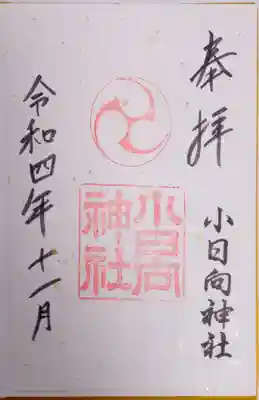 奉拝
小日向神社
小日向
神社
令和四年十一月